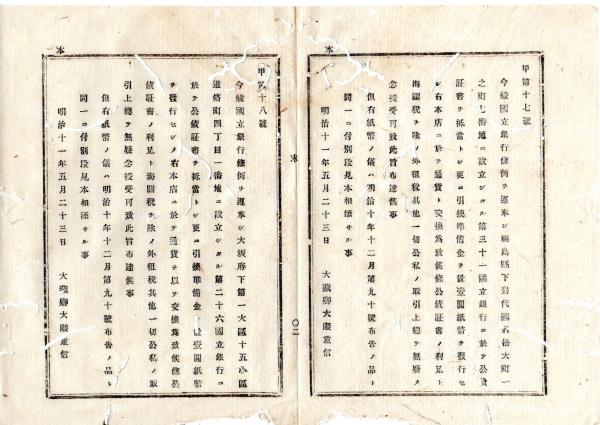 甲第十七號
今般國立銀行條例ヲ遵奉シ福島縣下岩代國若松大町一
之町七番地ニ設立シタル第三十一國立銀行ニ於テ公債
証書ヲ抵當トシ更ニ引換準備金ヲ置壹圓紙幣ヲ發行セ
シ右本店ニ於テ通貨ト交換為致候條公債証書ノ利足ト
海關税ヲ除ノ外租税其他一切公私ノ取引上總テ無疑
念授受可致此旨布達候事
但右紙幣ノ儀ハ明治十年十二月第九十號布告ノ品ト
同一ニ付別段見本相添サル事
明治十一年五月二十三日 大藏卿大隈重信
甲第十八號
今般國立銀行條例ヲ遵奉シ大坂府下第一大區十五小區
道修町四丁目一番地ニ設立シタル第二十六國立銀行ニ
於テ公債証書ヲ抵當トシ更ニ引換準備金ヲ置壹圓紙幣
ヲ發行セシメ右本店ニ於テ通貨ヲ以テ交換為致候條公
債証書ノ利足ト海關税ヲ除ノ外租税其他一切公私ノ取
引上總テ無疑念授受可致此旨布達候事
但右紙幣ノ儀ハ明治十年十二月第九十號布告ノ品ト
同一ニ付別段見本相添サル事
明治十一年五月二十三日 大藏卿大隈重信
本
本
〇二